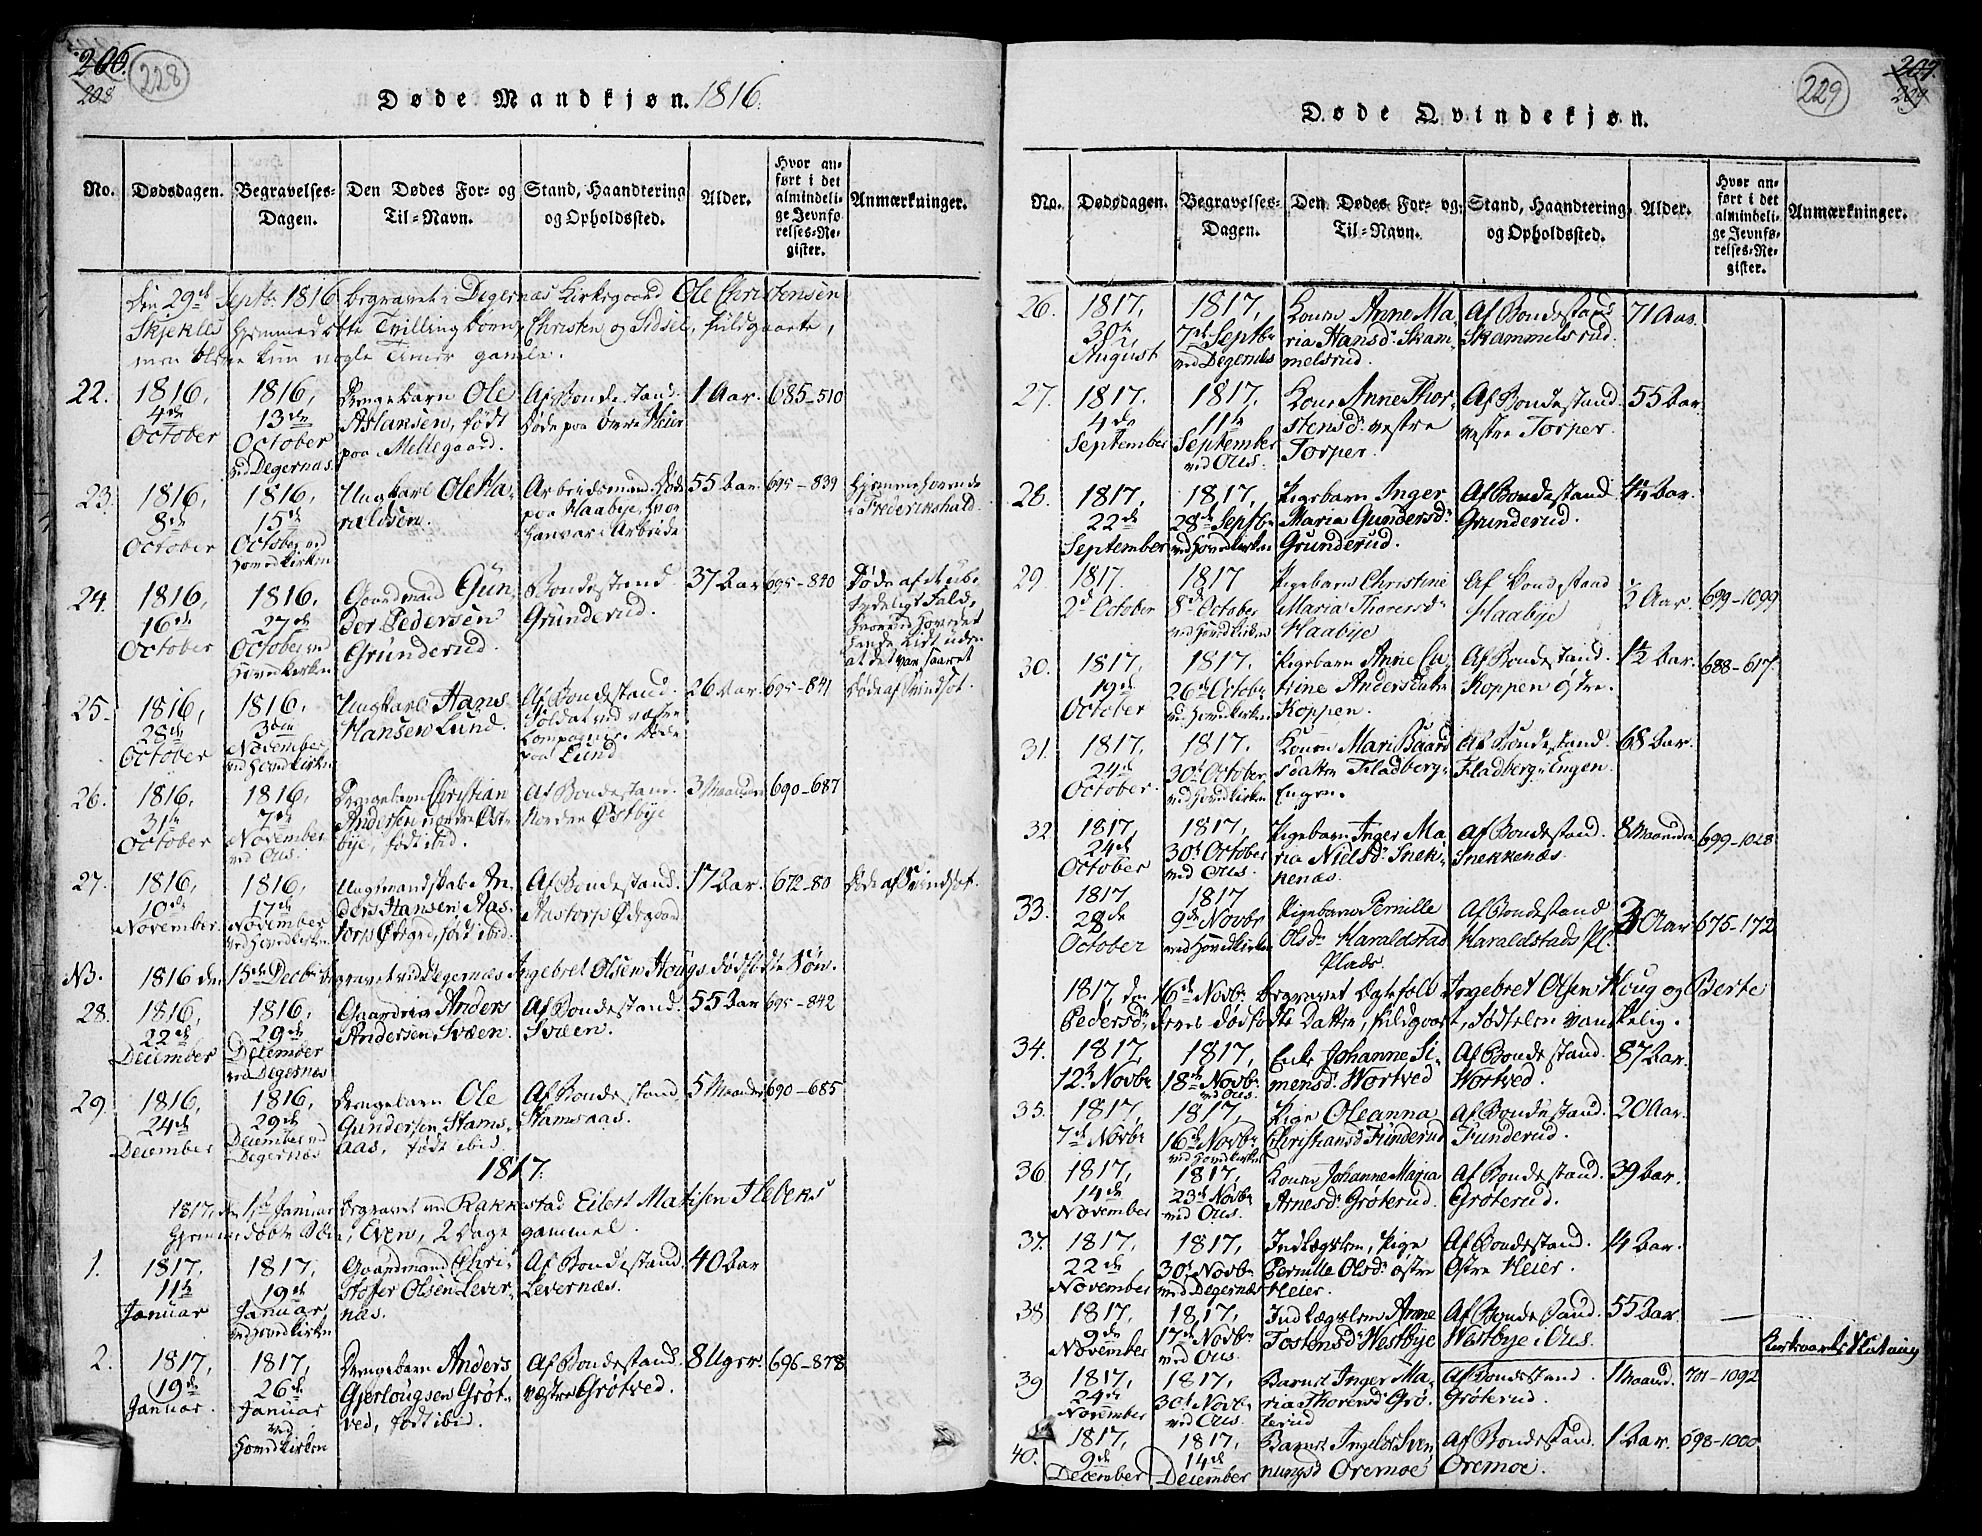 206.
208
228
Døde Mandkjøn. 1816.
No. Dødsdagen. Begravelses-Dagen. Den Dødes For- og Til-Navn. Stand, Haandtering og Opholdssted. Alder. Hvor anført i det almindelige Jevnførelses-Register. Anmærkninger.
Den 29de Septbr 1816 begravet i Degernæs Kirkegaard Ole Christensen
Skjekles hjemmedøbte Tvillingbørn, Christen og Sidsel, fuldgaarte,
men bleve kun nogle Timer gamle.
22. 1816, 1816, Drengebarn Ole Af Bondestand 1 Aar. 685-510
4de 13de Aslaksen, født Døde poa øvre Heier
October October poa Mellegaard.
ved Degernæs
23. 1816, 1816, Ungkarl Ole Ha- Arbeidsmand. Døde 55 Aar 695-839 Hjemmehørende
8de 15de raldsen. poa Haabye, hvor i Frederikshald.
October October ved han var i Arbeide
Hovedkirken
24. 1816, 1816, Gaardmand Gun- Bondestand 37 Aar 695-840 Døde af et ube-
16de 27de der Pedersen Grunderud. tydeligt Fald,
October October ved Grunderud. hvorved Hovedet
Hovedkirken
at det var saaret
25. 1816, 1816, Ungkarl Hans Af Bondestand. 26 Aar 695-841 Døde af Svindsot.
28de 3die Hansen Lund. Soldat ved
October November Compagnie. Døde
ved Hovedkirken poa Lund
26. 1816, 1816, Drengebarn Christian Af Bondestand 3 Maaneder 690-687
31te 7de Andersen nordre Øst- Nordre Østbye
October November bye, født ibid.
ved Øies.
27. 1816, 1816, Ungmandskab An- Af Bondestand. 17 Aar. 672-80 Døde af Svindsot.
10de 17de ders Hansen Aas- Aastorp Ødegaard
November November torp Ødegrd, født ibid.
ved Hovedkirken
NB. 1816 den 15de Decbr begravet ved Degernæs Ingebret Olsen Hougs dødfødte Søn.
28. 1816, 1816, Gaardmd Anders Af Bondestand. 55 Aar 695-842
22de 29de Andersen Svæen. Svæen.
December December
ved Degernæs
29. 1816, 1816, Drengebarn Ole Af Bondestand 5 Maaneder 690-685
24de 29de Gundersen Stams- Stamsaas.
December December ved aas, født ibid.
Degernæs
1817.
1817, den 1ste Januar begravet ved Rakkestad Eilert Matisen Flebeks
hjemmedøbte Søn, Even, 2 Dage gammel.
1. 1817, 1817, Gaardmand Chri- Af Bondestand. 40 Aar
11te 19de stoffer Olsen Lever- Levernæs.
Januar Januar næs.
ved Hovedkirken
2. 1817, 1817, Drengebarn Anders Af Bondestand. 8 Uger. 696-878
19de 26de Gjerlougsen Grøt- vestre Grøtved.
Januar. Januar ved, født ibid.
ved
Hovedkirken
229
207.
209
Døde Qvindekjøn.
No. Dødsdagen. Begravelses-Dagen. Den Dødes For- og Til-Navn. Stand, Haandtering og Opholdssted. Alder. Hvor anført i det almindelige Jevnførelses-Register. Anmærkninger.
26. 1817, 1817, Konen Anne Ma- Af Bondestand 71 Aar.
30te 7de Septbr ria Hansd. Skam- Skammelsrud.
August ved Degernæs melsrud.
27. 1817. 1817. Kone Anne Thor- Af Bondestand. 55 Aar
4de 11te stensd. vestre vestre Torper.
September September Torper.
ved Øies.
28. 1817, 1817, Pigebarn Inger Af Bondestand 4½ Aar.
22de 28de Septbr Maria Gundersd. Grunderud.
September ved Hovedkirken Grunderud.
29. 1817. 1817 Pigebarn Christine Af Bondestand ½ Aar. 699-1099
2de October 8de October Maria Thoresd. Haabije
ved Hovedkirken Haabije
30. 1817. 1817. Pigebarn Anne Ca- Af Bondestand. 1½ Aar. 688-617.
19de 26de Octobr trine Andersdatr Koppen østre.
October ved Hovedkirken Koppen.
31. 1817. 1817. Konen Mari Baard Af Bondestand. 68 Aar.
24de 30te October sdatter Fladberg- Fladberg-Engen.
October. ved Hovedkirken Engen.
32. 1817, 1817, Pigebarn Inger Ma- Af Bondestand. 8 Maaneder 699-1028
24de 30te October ria Nielsd. Snek- Snekkenæs.
October ved Øies. kenæs.
33. 1817 1817 Pigebarn Pernille Af Bondestand 3 Aar 675-172
28de 9de Novbr Olsd. Haraldstad Haraldstads Pl.
October ved Hovedkirken Plads.
1817, den 16de Novbr begravet Ægtefolk Ingebret Olsen Houg og Berte
Pedersd. deres dødfødte Datter, fuldgaart, Fødselen vanskelig.
34. 1817 1817, Enke Johanne Si- Af Bondestand. 87 Aar.
12te Novbr 18de Novbr mensd. Wortved Wortved.
ved Øies.
35. 1817, 1817, Pige Oleanna Af Bondestand. 20 Aar.
7de Novbr 16de Novbr Christiansd. Funderud Funderud.
ved Hovedkirken
36. 1817, 1817, Konen Johanne Maria Af Bondestand. 39 Aar.
14de 23de Novbr Arnesd. Grøterud. Grøterud.
November ved Øies.
37. 1817, 1817, Indlægslem, Pige Af Bondestand. 14 Aar.
22de 30te Novbr Pernille Olsd. østre Østre Heier.
November ved Degernæs Heier.
38 1817, 1817, Indlægslem Anne Af Bondestand. 55 Aar.
9de 17de Novbr Tostensd. Westbye Westbye i Øies.
November ved Øies.
39 1817, 1817, Barnet Inger Ma- Af Bondestand. 1 Maaned. 701-1092
24de 30te Novbr ria Thoresd. Grø- Grøterud.
November ved Øies. terud
40. 1817, 1817, Barnet Ingeborg Sven Af Bondestand. 1 Aar. 698-1000
9de 14de nungsd Oremoe Oremoe.
December December